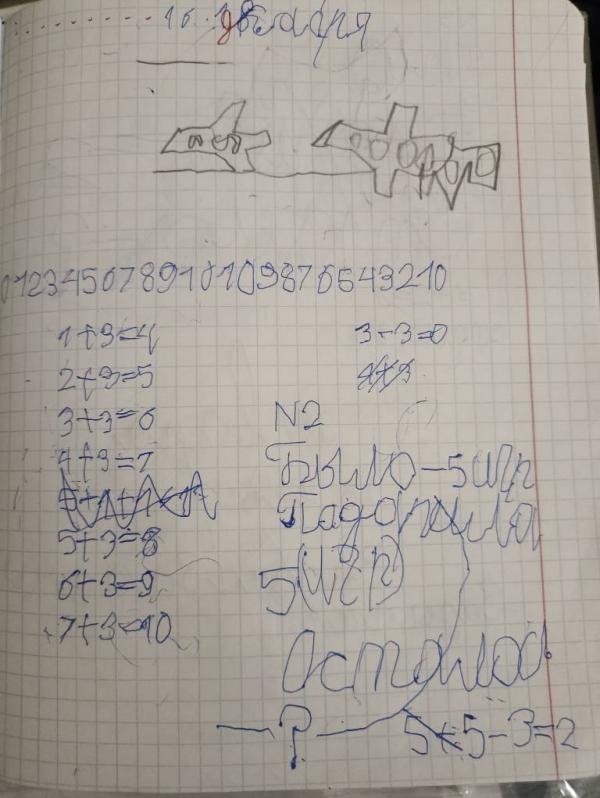 16 декабря
012345678910109876543210
1+3=4
2+3=5
3+3=6
4+3=7
5+3=8
6+3=9
7+3=10
3-3=0
N2
Было-5игр
Падорила
5(игр)
Осталос
-?-
5+5-3=2